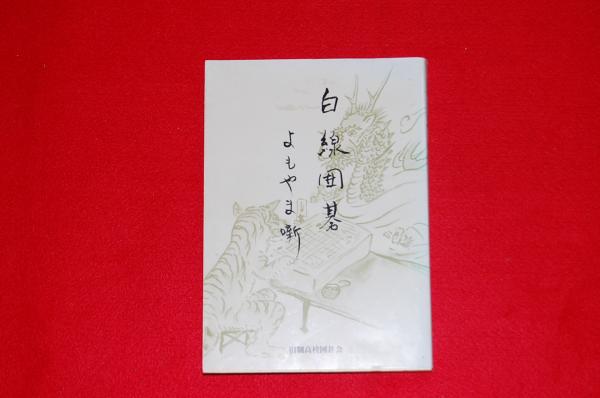 白線囲碁
よもやま噺
旧制高校囲碁会